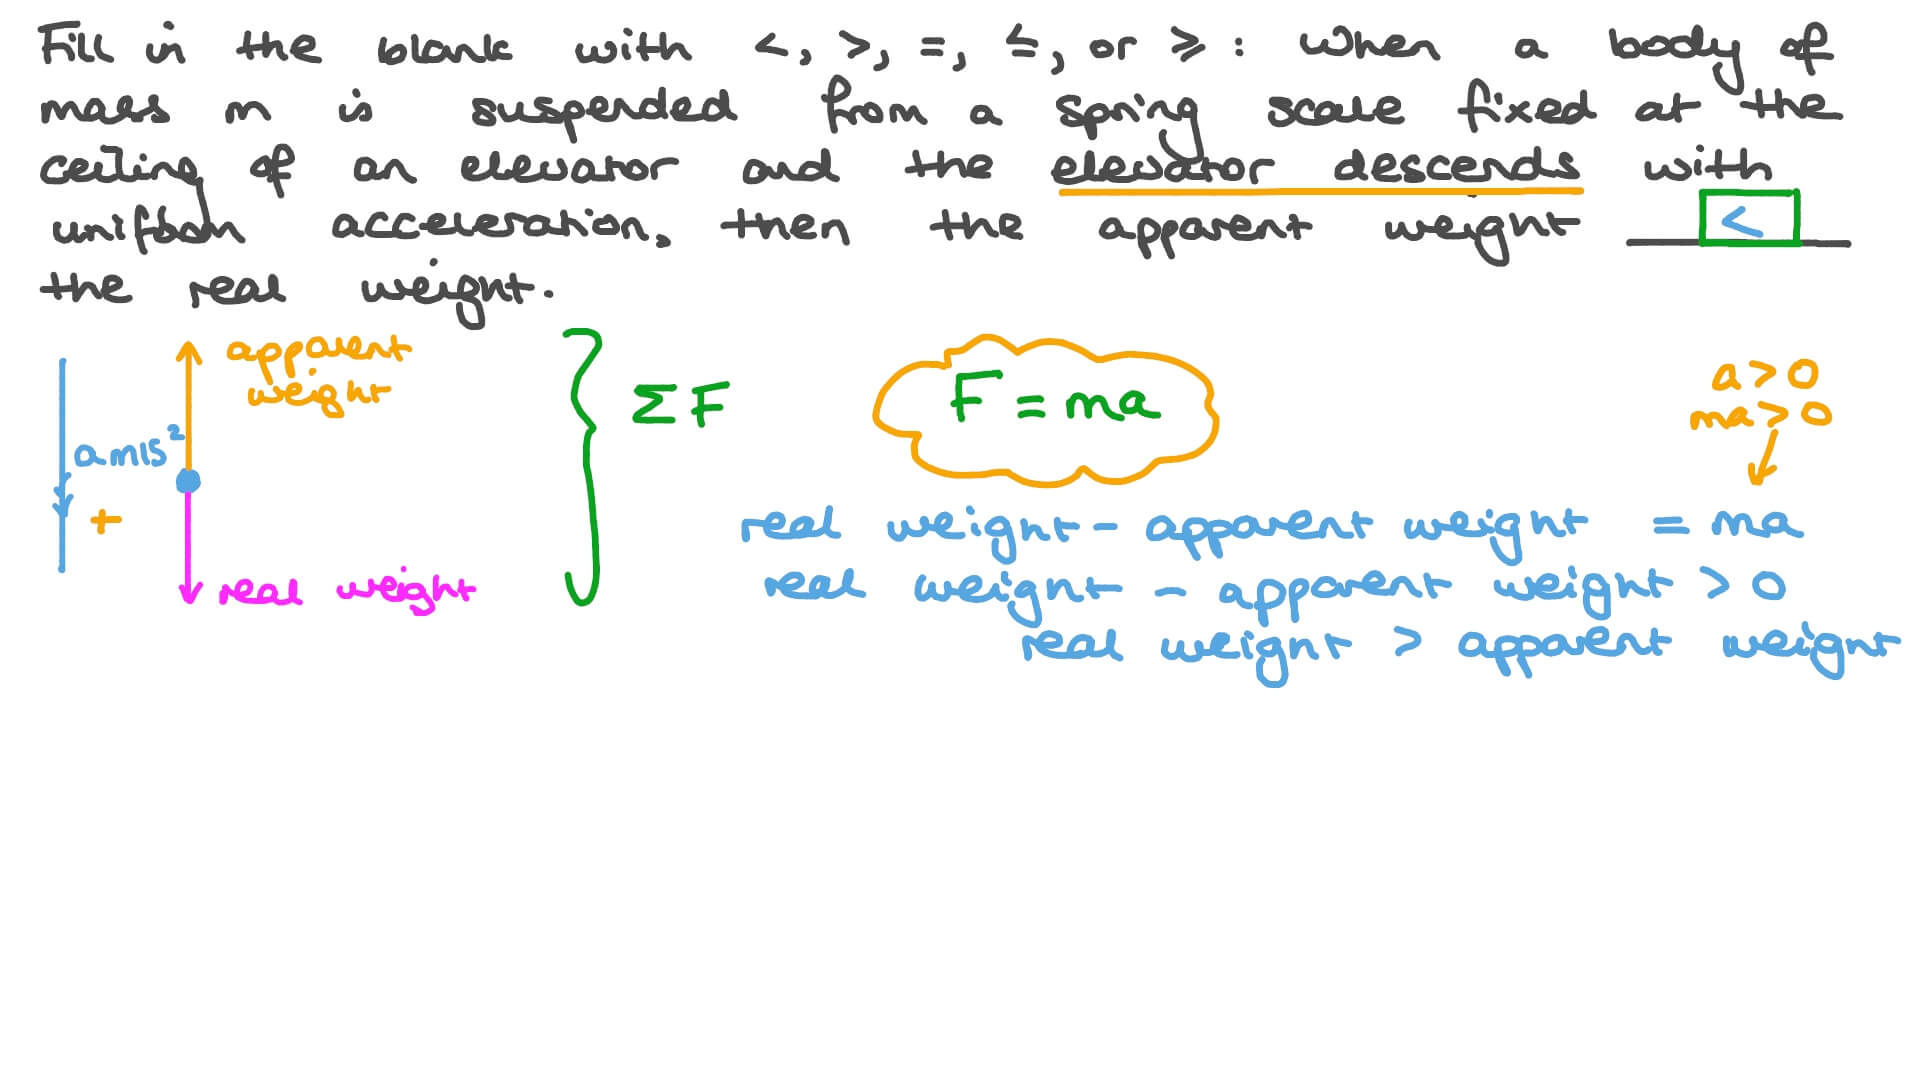 Fill in the blank with <, >, =, ≤, or ≥ : When a body of
mass m is suspended from a spring scale fixed at the
ceiling of an elevator and the elevator descends with
uniform acceleration, then the apparent weight <
the real weight.
apparent
weight
ΣF
F = ma
a>0
ma>0
a m/s²
+
real weight - apparent weight = ma
real weight
real weight - apparent weight > 0
real weight > apparent weight